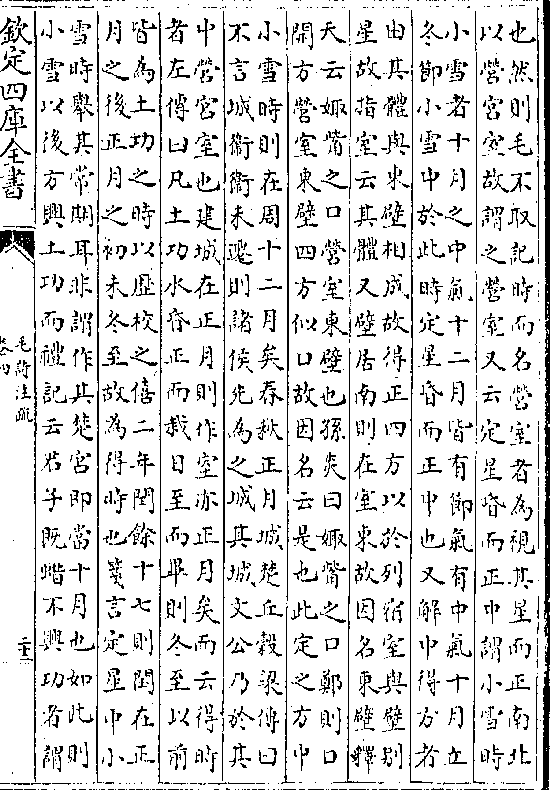 也然則毛不取記時而名營室者為視其星而正南北
以營宮室故謂之營室又云定星昏而正中謂小雪時
小雪者十月之中氣十二月皆有節氣有中氣十月立
冬節小雪中於此時定星昏而正中也又解中得方者
由其體與東壁相成故得正四方以於列宿室與壁別
星故指室云其體又壁居南則在室東故因名東壁釋
天云娵觜之口營室東壁也孫炎曰娵觜之口鄭則口
開方營室東壁四方似口故因名云是也此定之方中
小雪時則在周十二月矣春秋正月城楚丘穀梁傳曰
不言城衛衛未遷則諸侯先為之城其城文公乃於其
中營宮室也建城在正月則作室亦正月矣而云得時
者左傳曰凡土功水昏正而栽日至而畢則冬至以前
皆為土功之時以歷校之僖二年閏餘十七則閏在正
月之後正月之初未冬至故為得時也箋言定星中小
雪時舉其常期耳非謂作其楚宮即當十月也如此則
小雪以後方興土功而禮記云君子既蜡不興功者謂
欽定四庫全書
毛詩注疏
卷四
二十三